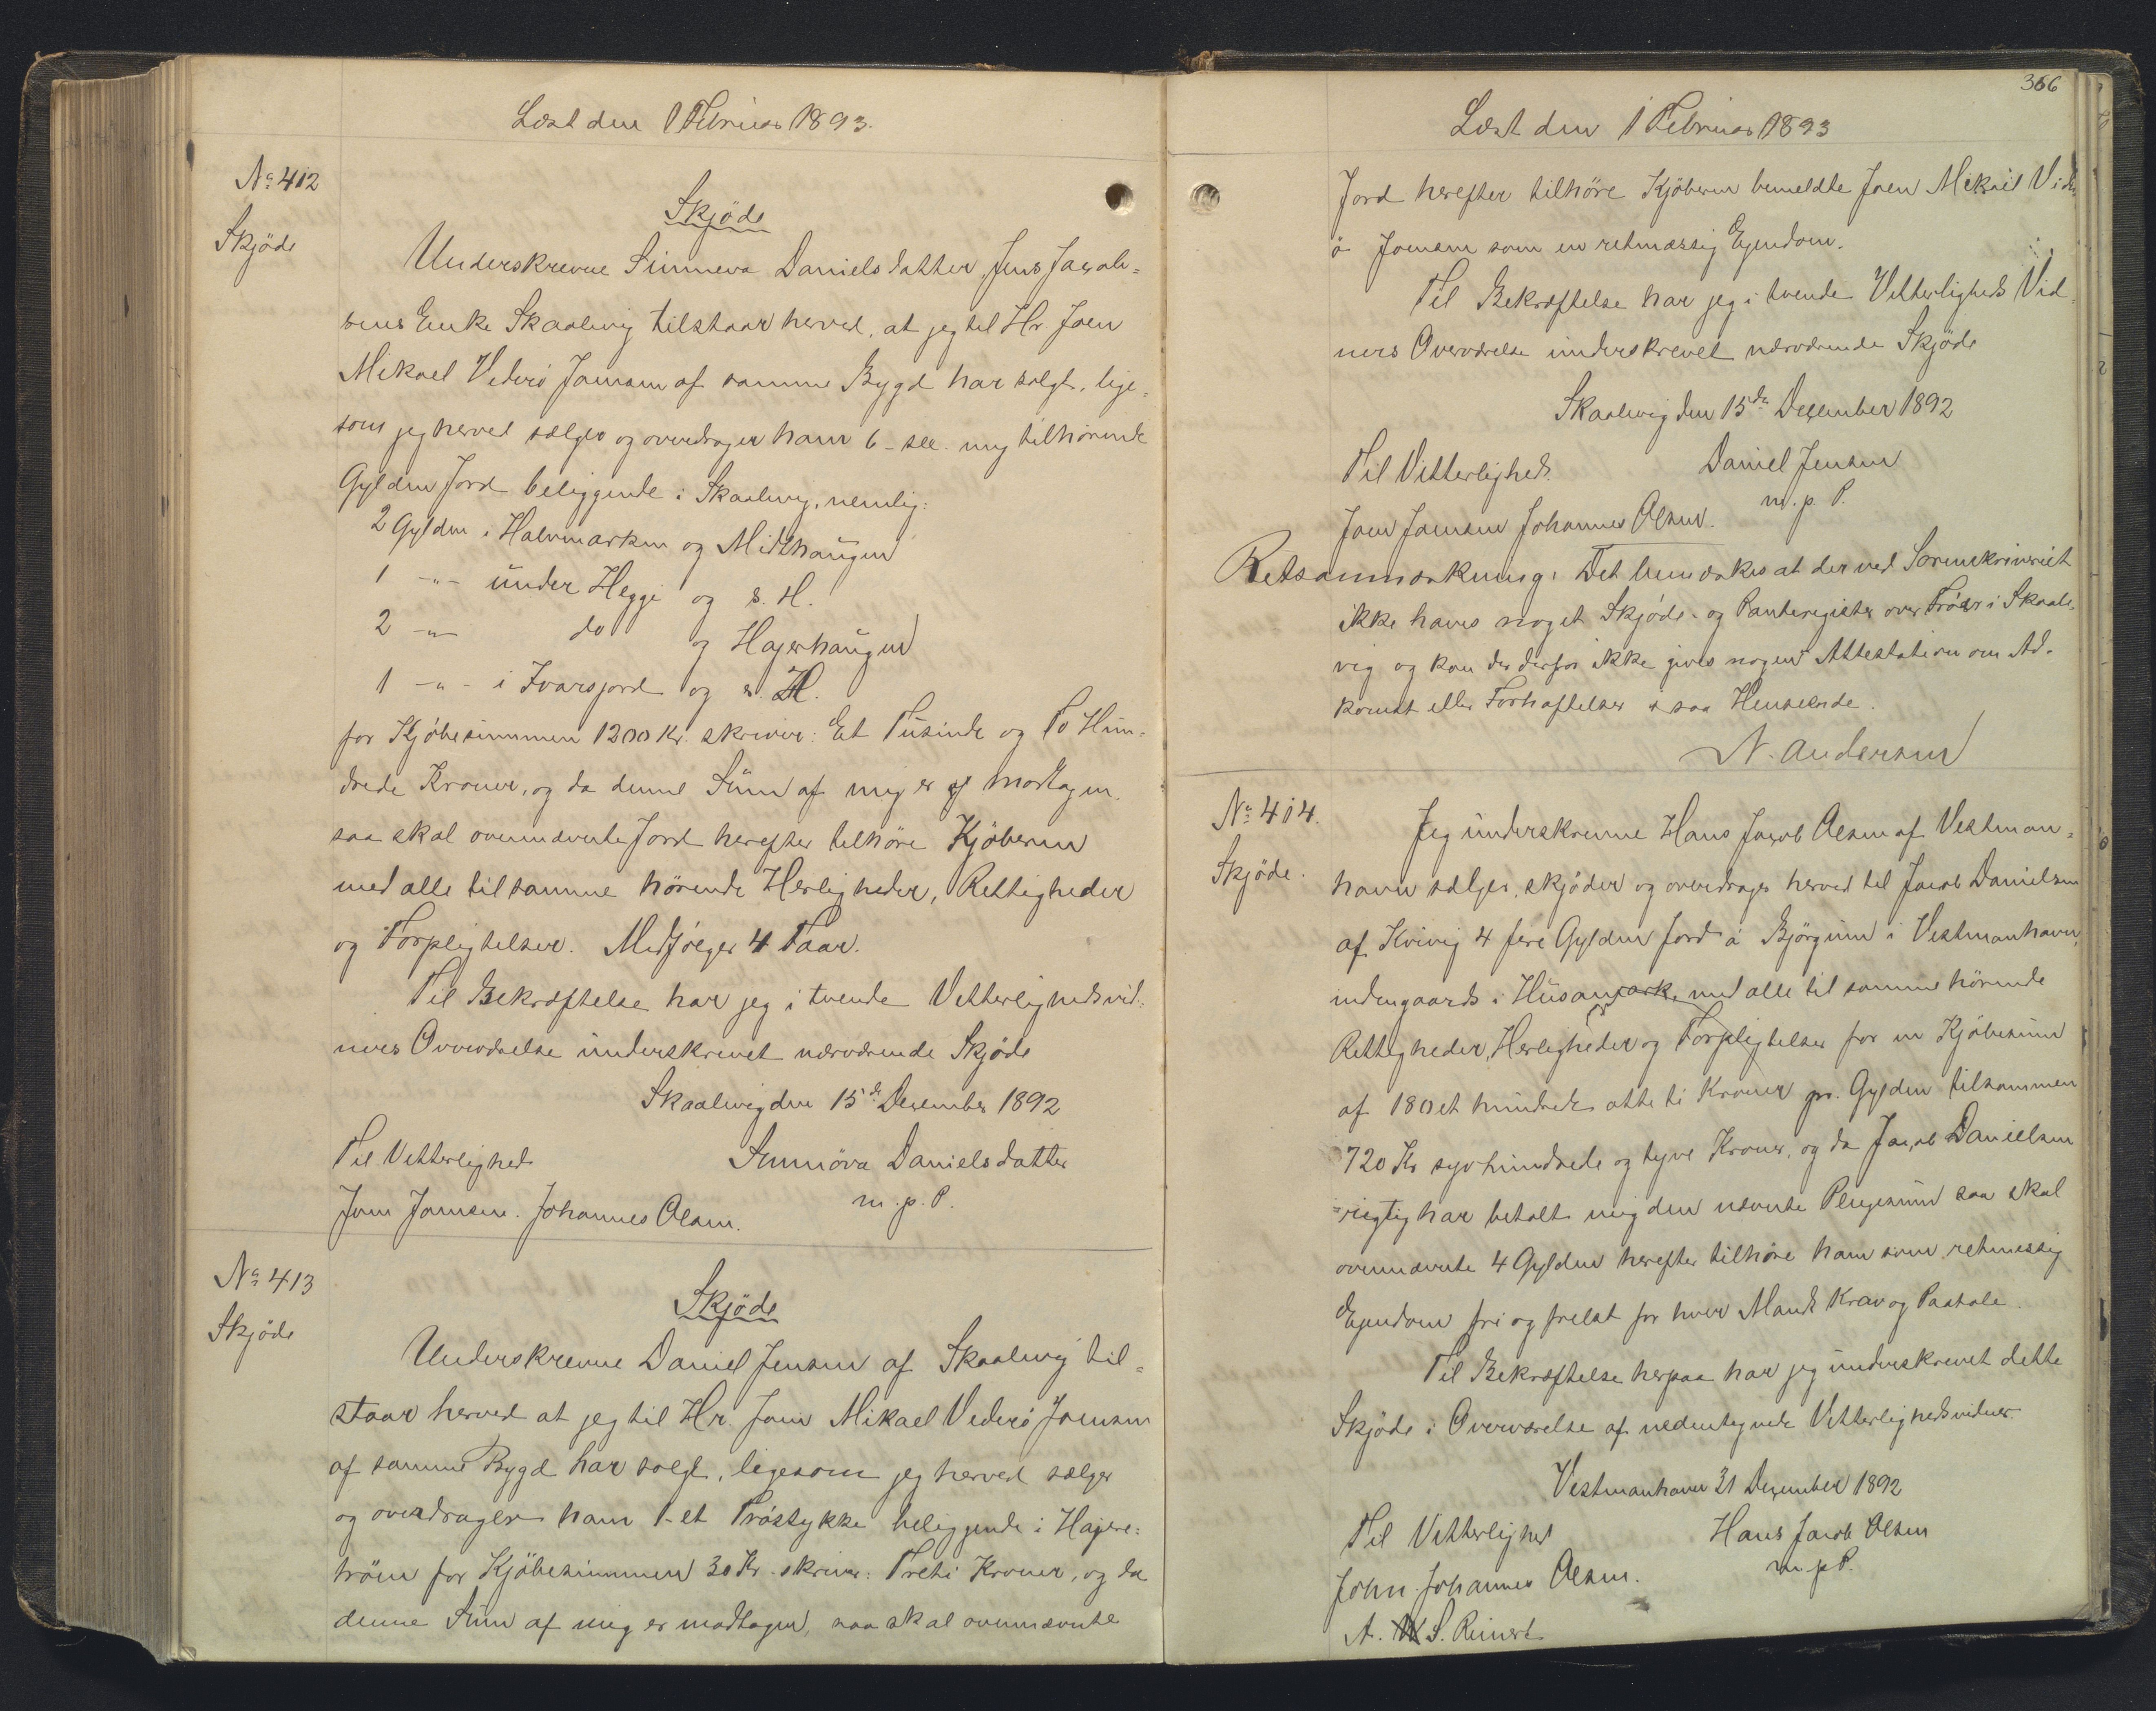 Læst den 1 Februar 1893.
No 412
Skjöde
Skjöde
Underskrevne Sunneva Danielsdatter, Jens Jacob-
sens Enke Skaalevig tilstaar herved, at jeg til Hr. Joen
Mikael Viderö Joensen af samme Bygd har solgt, lige-
som jeg herved sælger og overdrager ham 6 - sex - mig tilhörende
Gylden Jord beliggende i Skaalevig, nemlig:
2 Gylden i Halvmarken og Midthaugen
1 -"- under Heggi og s. H.
2 -"- do og Hajerhaugen
1 -"- i Ivarsjord og s. H.
for Kjöbesummen 1200 Kr. skriver: Et Tusinde og To Hun-
drede Kroner, og da denne Sum af mig er modtagen,
saa skal ovennævnte Jord herefter tilhöre Kjöberen
med alle til samme hörende Herligheder, Rettigheder
og Forpligtelser. Medfölger 4 Faar.
Til Bekræftelse har jeg i tvende Vitterlighedsvid-
ners Overværelse underskrevet nærværende Skjöde
Skaalevig den 15de Dezember 1892
Til Vitterlighed Sunnöva Danielsdatter
Joen Joensen. Johannes Olsen. m. p. P.
No 413
Skjöde
Skjöde
Underskrevne Daniel Jensen af Skaalevig til-
staar herved at jeg til Hr. Joen Mikael Viderö Joensen
af samme Bygd har solgt, ligesom jeg herved sælger
og overdrager ham 1 - et Tröstykke beliggende i Hajere-
tröen for Kjöbesummen 30 Kr. skriver: Treti Kroner, og da
denne Sum af mig er modtagen, saa skal ovennævnte
366
Læst den 1 Februar 1893
Jord herefter tilhöre Kjöberen bemeldte Joen Mikael Vider-
ö Joensen som en retmæssig Ejendom.
Til Bekræftelse har jeg i tvende Vitterligheds Vid-
ners Overværelse underskrevet nærværende Skjöde
Skaalevig den 15de Dezember 1892
Til Vitterlighed. Daniel Jensen
Joen Joensen Johannes Olsen. m. p. P.
Retsanmærkning: Det bemærkes at der ved Sorenskriveriet
ikke haves noget Skjöde- og Panteregister over Tröer i Skaale-
vig og kan der derfor ikke gives nogen Attestation om Ad-
komst eller Forhæftelser i saa Henseende.
N. Andersen
No 414.
Skjöde.
Jeg underskrevne Hans Jacob Olsen af Vestman-
havn sælger, skjöder og overdrager herved til Jacob Danielsen
af Kvivig 4 fire Gylden Jord á Björgum i Vestmanhavn,
indengaards i Húsamark, med alle til samme hörende
Rettigheder, Herligheder og Forpligtelser for en Kjöbesum
af 180 et hundrede otte ti Kroner pr. Gylden tilsammen
720 Kr syvhundrede og tyve Kroner, og da Jacob Danielsen
rigtig har betalt mig den nævnte Pengesum saa skal
ovennævnte 4 Gylden herefter tilhöre ham som retmæssig
Ejendom fri og frelst for hver Mands Krav og Paatale.
Til Bekræftelse herpaa har jeg underskrevet dette
Skjöde i Overværelse af nedentegnede Vitterlighedsvidner.
Vestmanhavn 31 Dezember 1892
Til Vitterlighed Hans Jacob Olsen
John Johannes Olsen. m. p. P.
A. S. Reinert